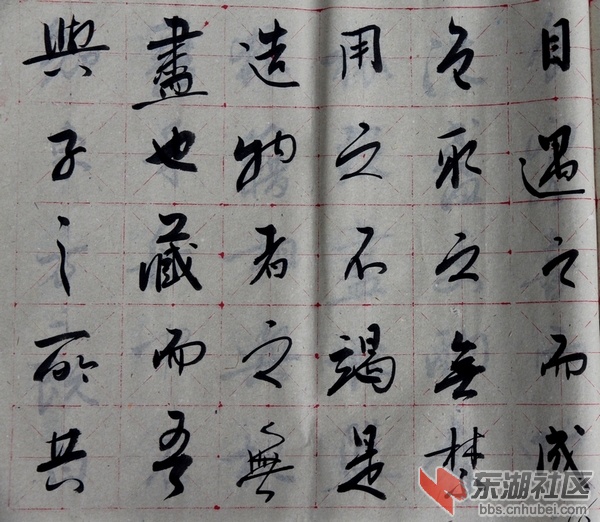 目遇之而成
色取之無禁
用之不竭是
造物者之無
盡也藏而吾
與子之所共
东湖社区
bbs.cnhubei.com